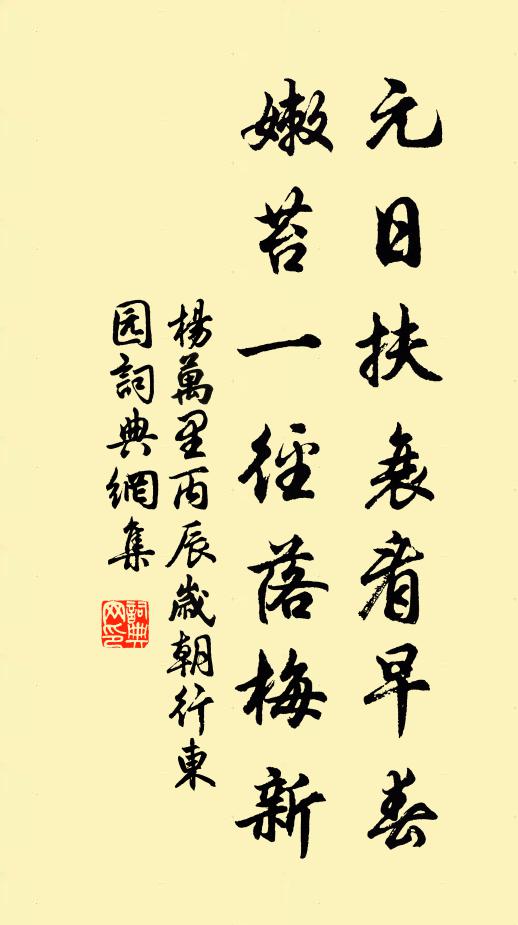 元日扶衰看早春
嫩苔一径落梅新
楊萬里丙辰歲朝行東
园詞典網集
詞典网印